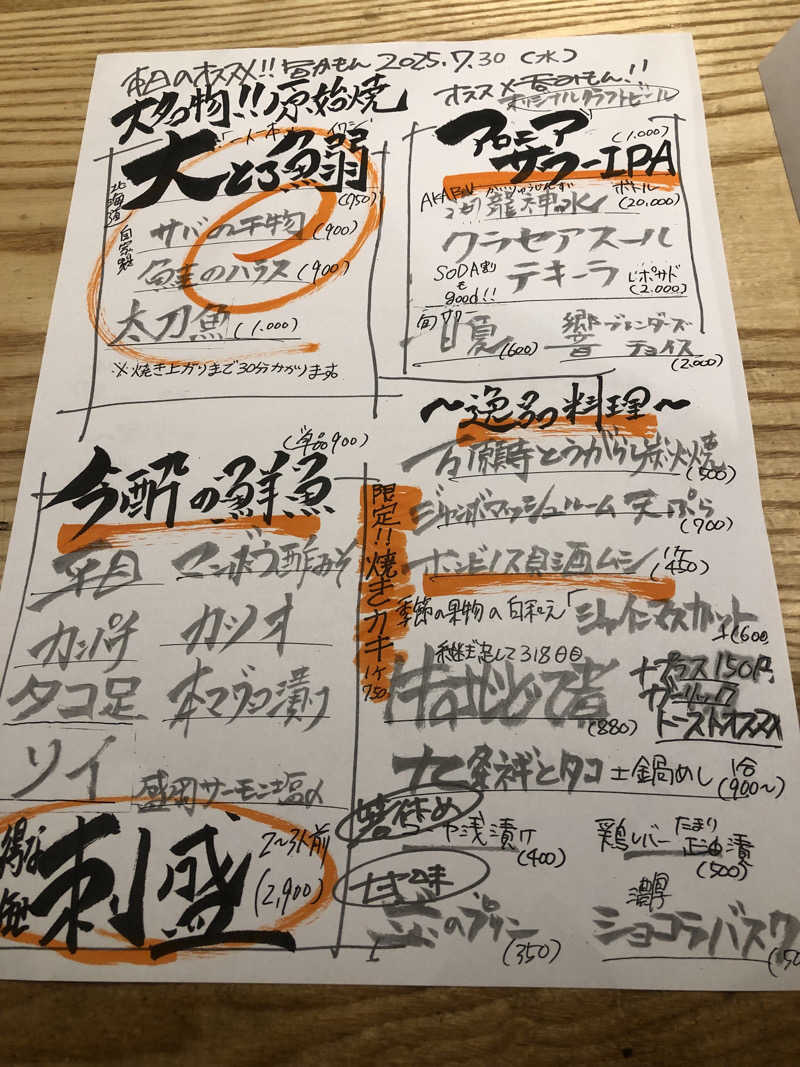 本日のオススメ!! 2025.7.30(水)
大物!!原始焼
北海道
自家製
大とろ鰯
イワシ
(950)
サバの干物(900)
鮭のハラス(900)
太刀魚(1.000)
※焼き上がりまで30分かかります。
オススメ呑みもん!!
オリジナルクラフトビール
アロニア(1.000)
サワーIPA
AKABU
龍神水
ボトル(20,000)
クラセアスール
SODA割も good!!
テキーラ
レポサド(2.000)
旬サワー
(600)
響ブレンダーズ
チョイス(2.000)
(単品900)
今酔の鮮魚
平目 マンボウ酢みそ
カンパチ カツオ
タコ足 本マグロ漬け
ソイ 盛岡サーモン塩〆
得な
刺盛
2〜3人前
(2,900)
限定!!焼きガキ 1ケ750
〜逸品の料理〜
万願寺とうがらし炭火焼(500)
ジャンボマッシュルーム天ぷら(700)
ホンビノス貝酒ムシ 1ケ(450)
季節の果物の白和え「シャインマスカット」(600)
継ぎ足して318日目
牛すじどて煮(880)
プラス150円
ガーリック
トーストオススメ
とタコ土鍋めし 1合(900〜)
箸休め
浅漬け(400)
鶏レバーたまり正油漬(500)
甘味
のプリン(350)
濃厚
ショコラバスク